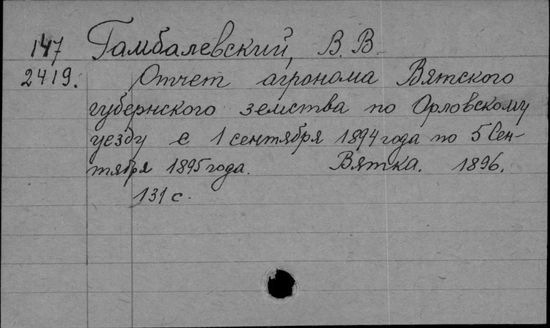 147 Гамбалевский, В. В.
2419. Отчет агронома Вятского
губернского земства по Орловскому
уезду с 1 сентября 1894 года по 5 Сен-
тября 1895 года. Вятка. 1896.
131 с.